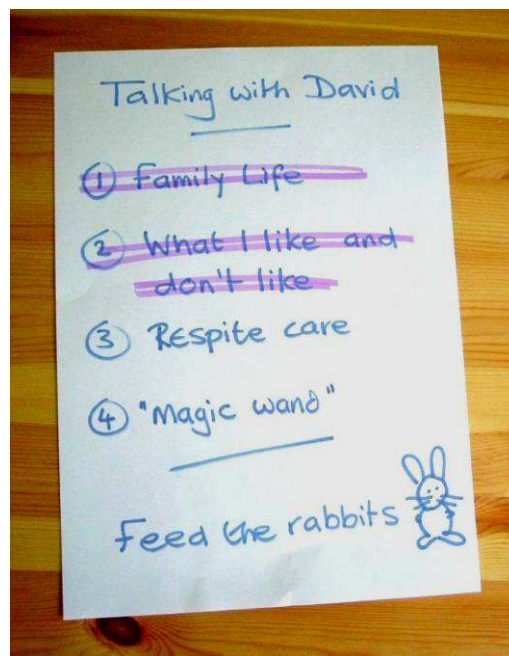 Talking with David
1 Family Life
2 What I like and
don't like
3 Respite care
4 "Magic wand"
Feed the rabbits